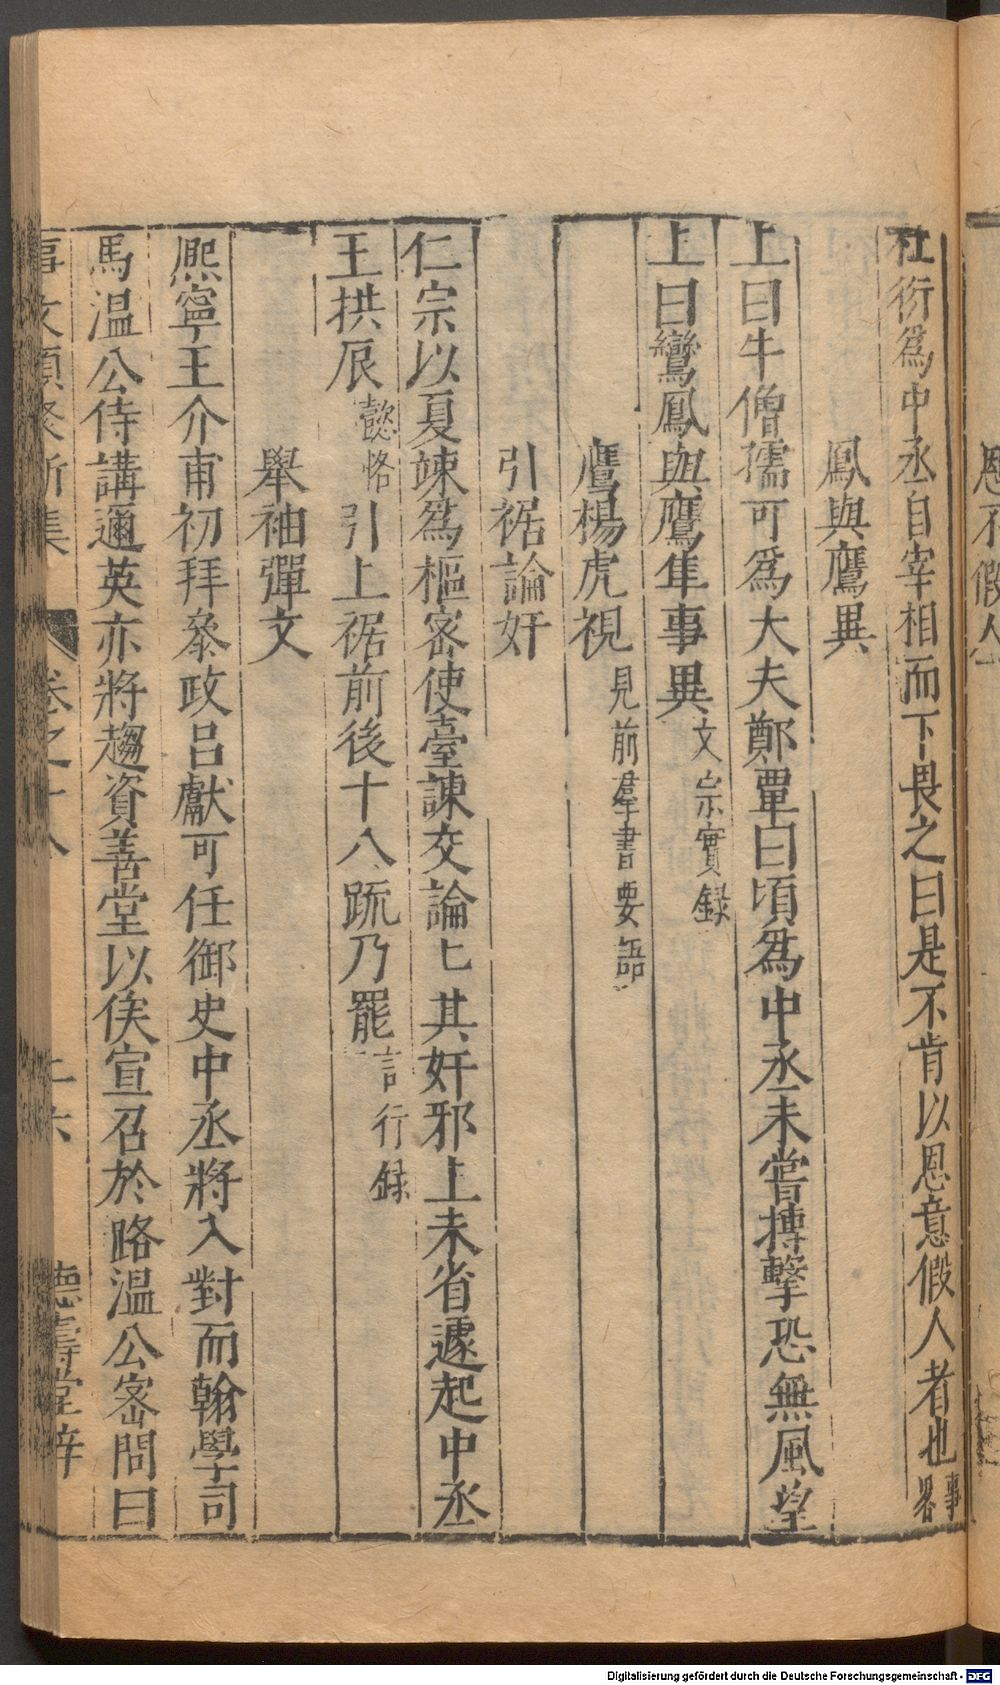 恩不假人
杜衍爲中丞自宰相而下畏之曰是不肯以恩意假人者也事畧
鳳與鷹異
上曰牛僧孺可爲大夫鄭覃曰頃爲中丞未嘗摶擊恐無風望
上曰鸞鳳與鷹隼事異文宗實録
鷹楊虎視見前羣書要語
引裾論奸
仁宗以夏竦爲樞密使臺諫交論匕其奸邪上未省遽起中丞
王拱辰懿恪引上裾前後十八䟽乃罷言行録
舉袖彈文
熈寧王介甫初拜叅政吕獻可任御史中丞將入對而翰學司
馬温公侍講邇英亦將趨資善堂以俟宣召於路温公宻問曰
事文類聚新集 卷之十八 十六 德壽堂梓
Digitalisierung gefördert durch die Deutsche Forschungsgemeinschaft - DFG